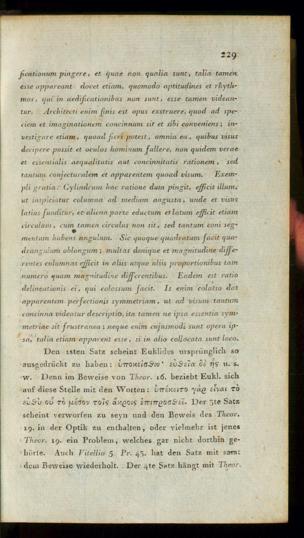 229
ficationum pingere, et quae non qualia sunt, talia tamen
esse appareant docet etiam, quomodo aptitudines et rhyth-
mos, qui in aedificationibus non sunt, esse tamen videan-
tur. Architecti enim finis est opus exstruere, quod ad spe-
ciem et imaginationem concinnum sit et sibi conveniens; in-
vestigare etiam, quoad fieri potest, omnia ea, quibus visus
decipere possit et oculos hominum fallere, non quidem verae
et essentialis aequalitatis aut concinnitatis rationem, sed
tantum conjecturalem et apparentem quoad visum. Exem-
pli gratia: Cylindrum hac ratione dum pingit, efficit illum,
ut inspiciatur columna ad mediam angusta, unde et visus
latius funditur, et aliena parte eductum et latum efficit etiam
circulum, cum tamen circulus non sit, sed tantum coni seg-
mentum habens angulum. Sic quoque quadratum facit qua-
drangulum oblongum; multas denique et magnitudine diffe-
rentes columnas efficit in aliis atque aliis proportionibus tam
numero quam magnitudine differentibus. Eadem est ratio
delineationis ei, qui colossum facit. Is enim colatio dat
apparentem perfectionis symmetriam, ut ad visum tantum
concinna videatur descriptio, ita tamen ne ipsa essentia sym-
metriae sit frustranea; neque enim eiusmodi sunt opera ip-
sa, talia etiam apparent esse, si in alio collocata sunt loco.
Den 12ten Satz scheint Euklides ursprünglich so
ausgedrückt zu haben: ὑποκείσθω εὐθεῖα δὲ ἧς u. s.
w. Denn im Beweise von Theor. 16. beziebt Eukl. sich
auf diese Stelle mit den Worten: ὑπόκειτο γὰρ εἶναι τὸ
εὐθὺ οὗ τὸ μέσον τοῖς ἄκροις ἐπιπροσθεῖ. Der 31te Satz
scheint verworfen zu seyn und den Beweis des Theor.
19. in der Optik zu enthalten, oder vielmehr ist jenes
Theor. 19. ein Problem, welches gar nicht dorthin ge-
hörte. Auch Vitellio 5. Pr. 45. hat den Satz mit samt
dem Beweise wiederholt. Der 4te Satz hängt mit Theor.